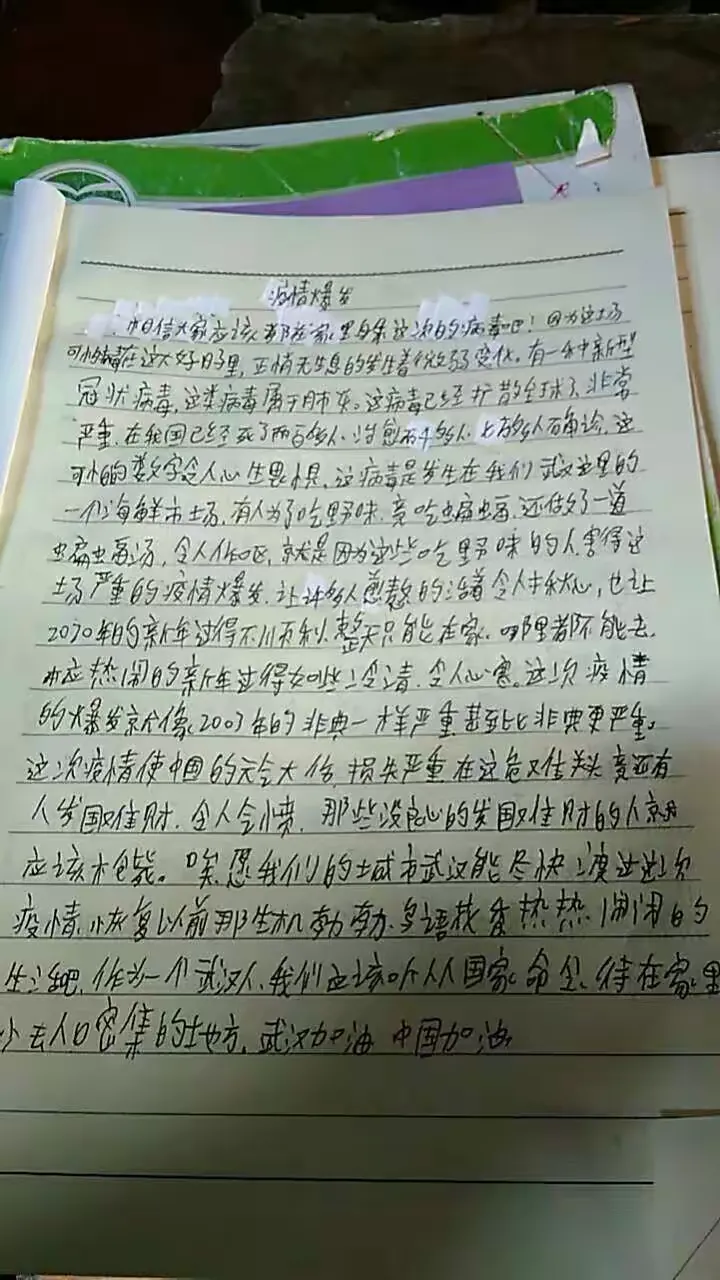 疫情爆发
相信大家应该都在家里躲这次的病毒吧！因为这场
可怕病毒在这大好日子里，正悄无生息的发生着微弱变化。有一种新型
冠状病毒，这类病毒属于肺炎。这病毒已经扩散全球了，非常
严重，在我国已经死了两百多人，治愈两千多人，上万多人确诊，这
可怕的数字令人心生畏惧，这病毒是发生在我们武汉这里的
一个海鲜市场，有人为了吃野味，竟吃蝙蝠，还做了一道
蝙蝠汤，令人作呕，就是因为这些吃野味的人害得这
场严重的疫情爆发，让许多人愁愁的活着令人揪心，也让
2020年的新年过得不顺利，整天只能在家，哪里都不能去，
本应热闹的新年过得如此冷清，令人心寒。这次疫情
的爆发就像2003年的非典一样严重甚至比非典更严重。
这次疫情使中国的元气大伤，损失严重，在这危难关头竟还有
人发国难财，令人气愤，那些没良心的发国难财的人就
应该枪毙。唉，愿我们的城市武汉能尽快渡过这次
疫情，恢复以前那生机勃勃、鸟语花香、热热闹闹的
生活吧，作为一个武汉人，我们应该听从国家命令，待在家里
少去人口密集的地方，武汉加油 中国加油